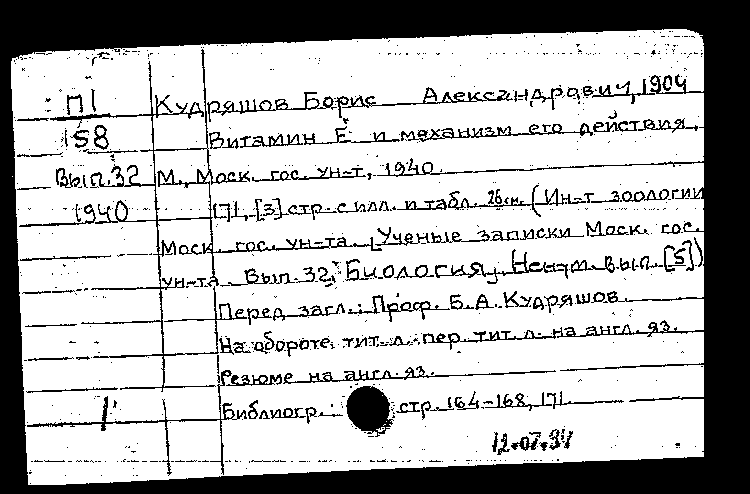 П1 Кудряшов Борис Александрович, 1904
158 Витамин Е и механизм его действия.
Вып. 32 М., Моск. гос. ун-т, 1940.
1940 171, [3] стр. с илл. и табл. 26 см. (Ин-т зоологии
Моск. гос. ун-та. Ученые записки Моск. гос.
ун-та. Вып. 32, Биология, Ненум. вып. [5])
Перед загл.: Проф. Б. А. Кудряшов.
На обороте тит. л.: пер. тит. л. на англ. яз.
Резюме на англ. яз.
1 Библиогр.: стр. 164-168, 171.